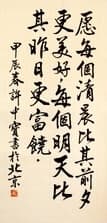 愿每個清晨比其前夕
更美好每個明天比
其昨日更富饒
甲辰春許中寶書於北京